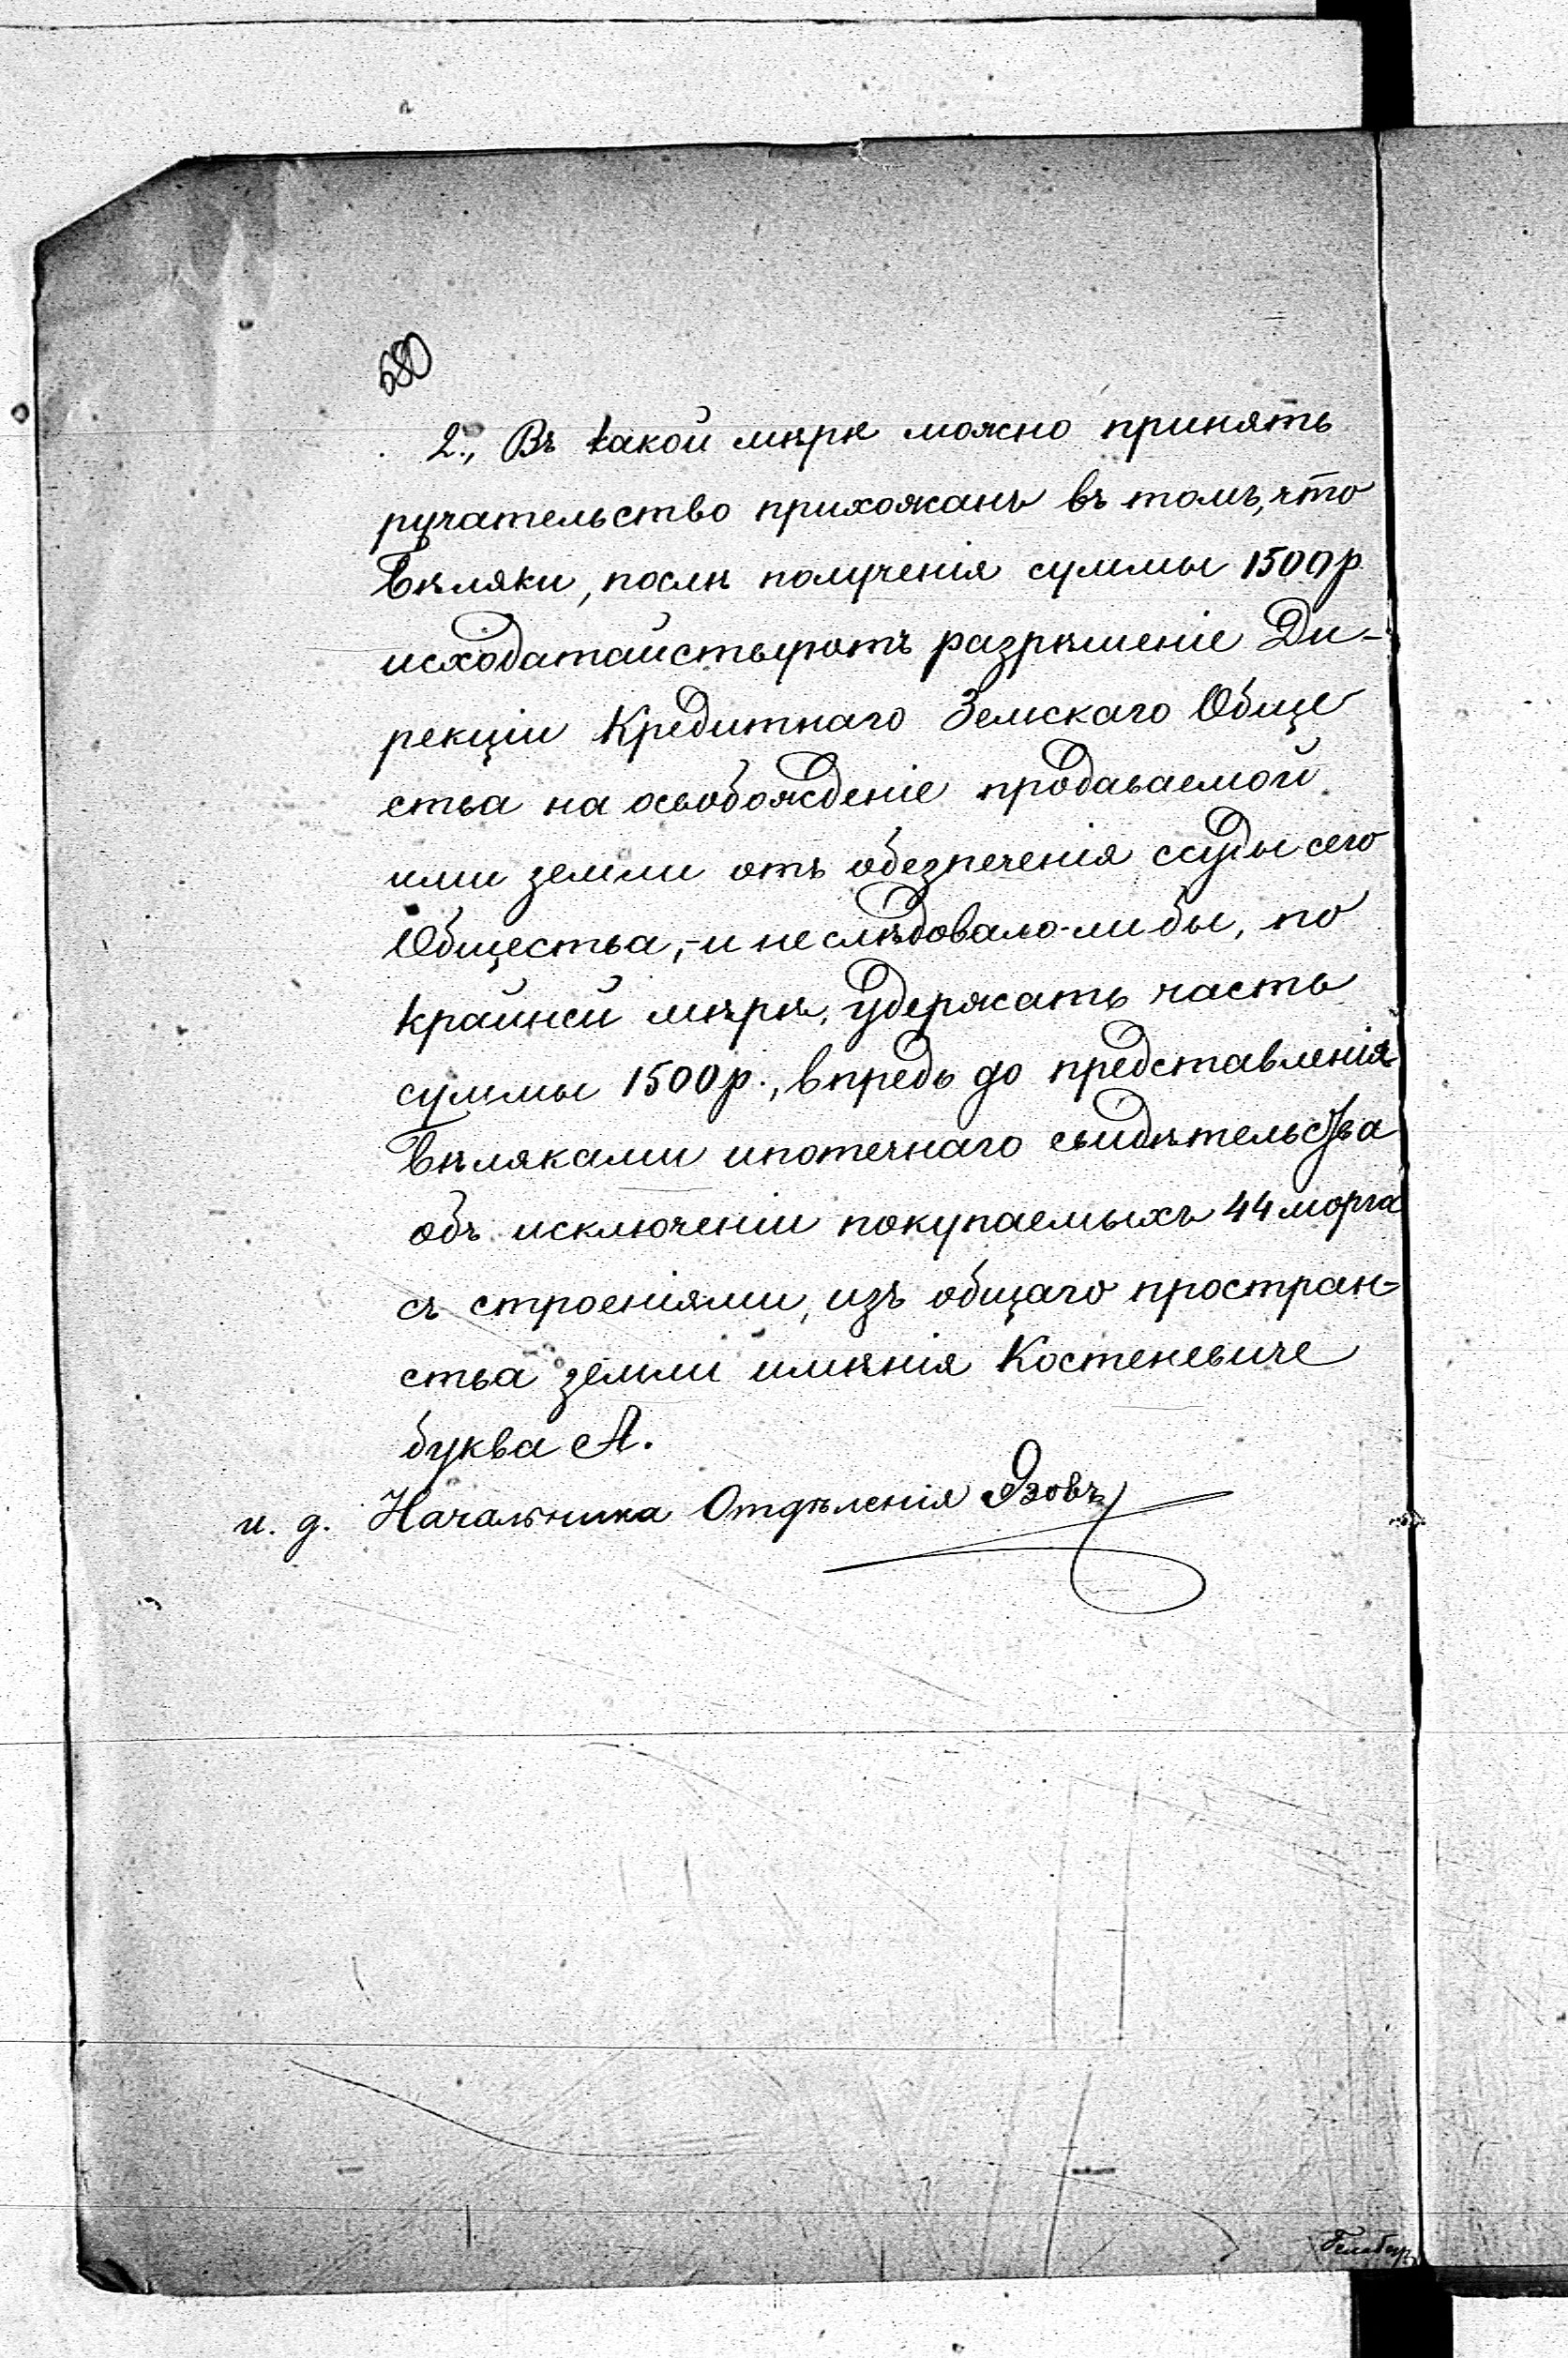 680
2., Въ какой мѣрѣ можно принять
ручательство прихожанъ въ томъ, что
Бѣляки, послѣ полученія суммы 1500 р
исходатайствуютъ разрѣшеніе Ди-
рекціи Кредитнаго Земскаго Обще
ства на освобожденіе продаваемой
ими земли отъ обезпеченія ссуды сего
Общества,-и не слѣдовало-ли бы, по
крайней мѣрѣ, удержать часть
суммы 1500 р., впредь до представленія
Бѣляками ипотечнаго свидѣтельства
объ исключеніи покупаемыхъ 44 морга
съ строеніями, изъ общаго простран-
ства земли имѣнія Костеневиче
буква А.
и. д. Начальника Отдѣленія Язовъ